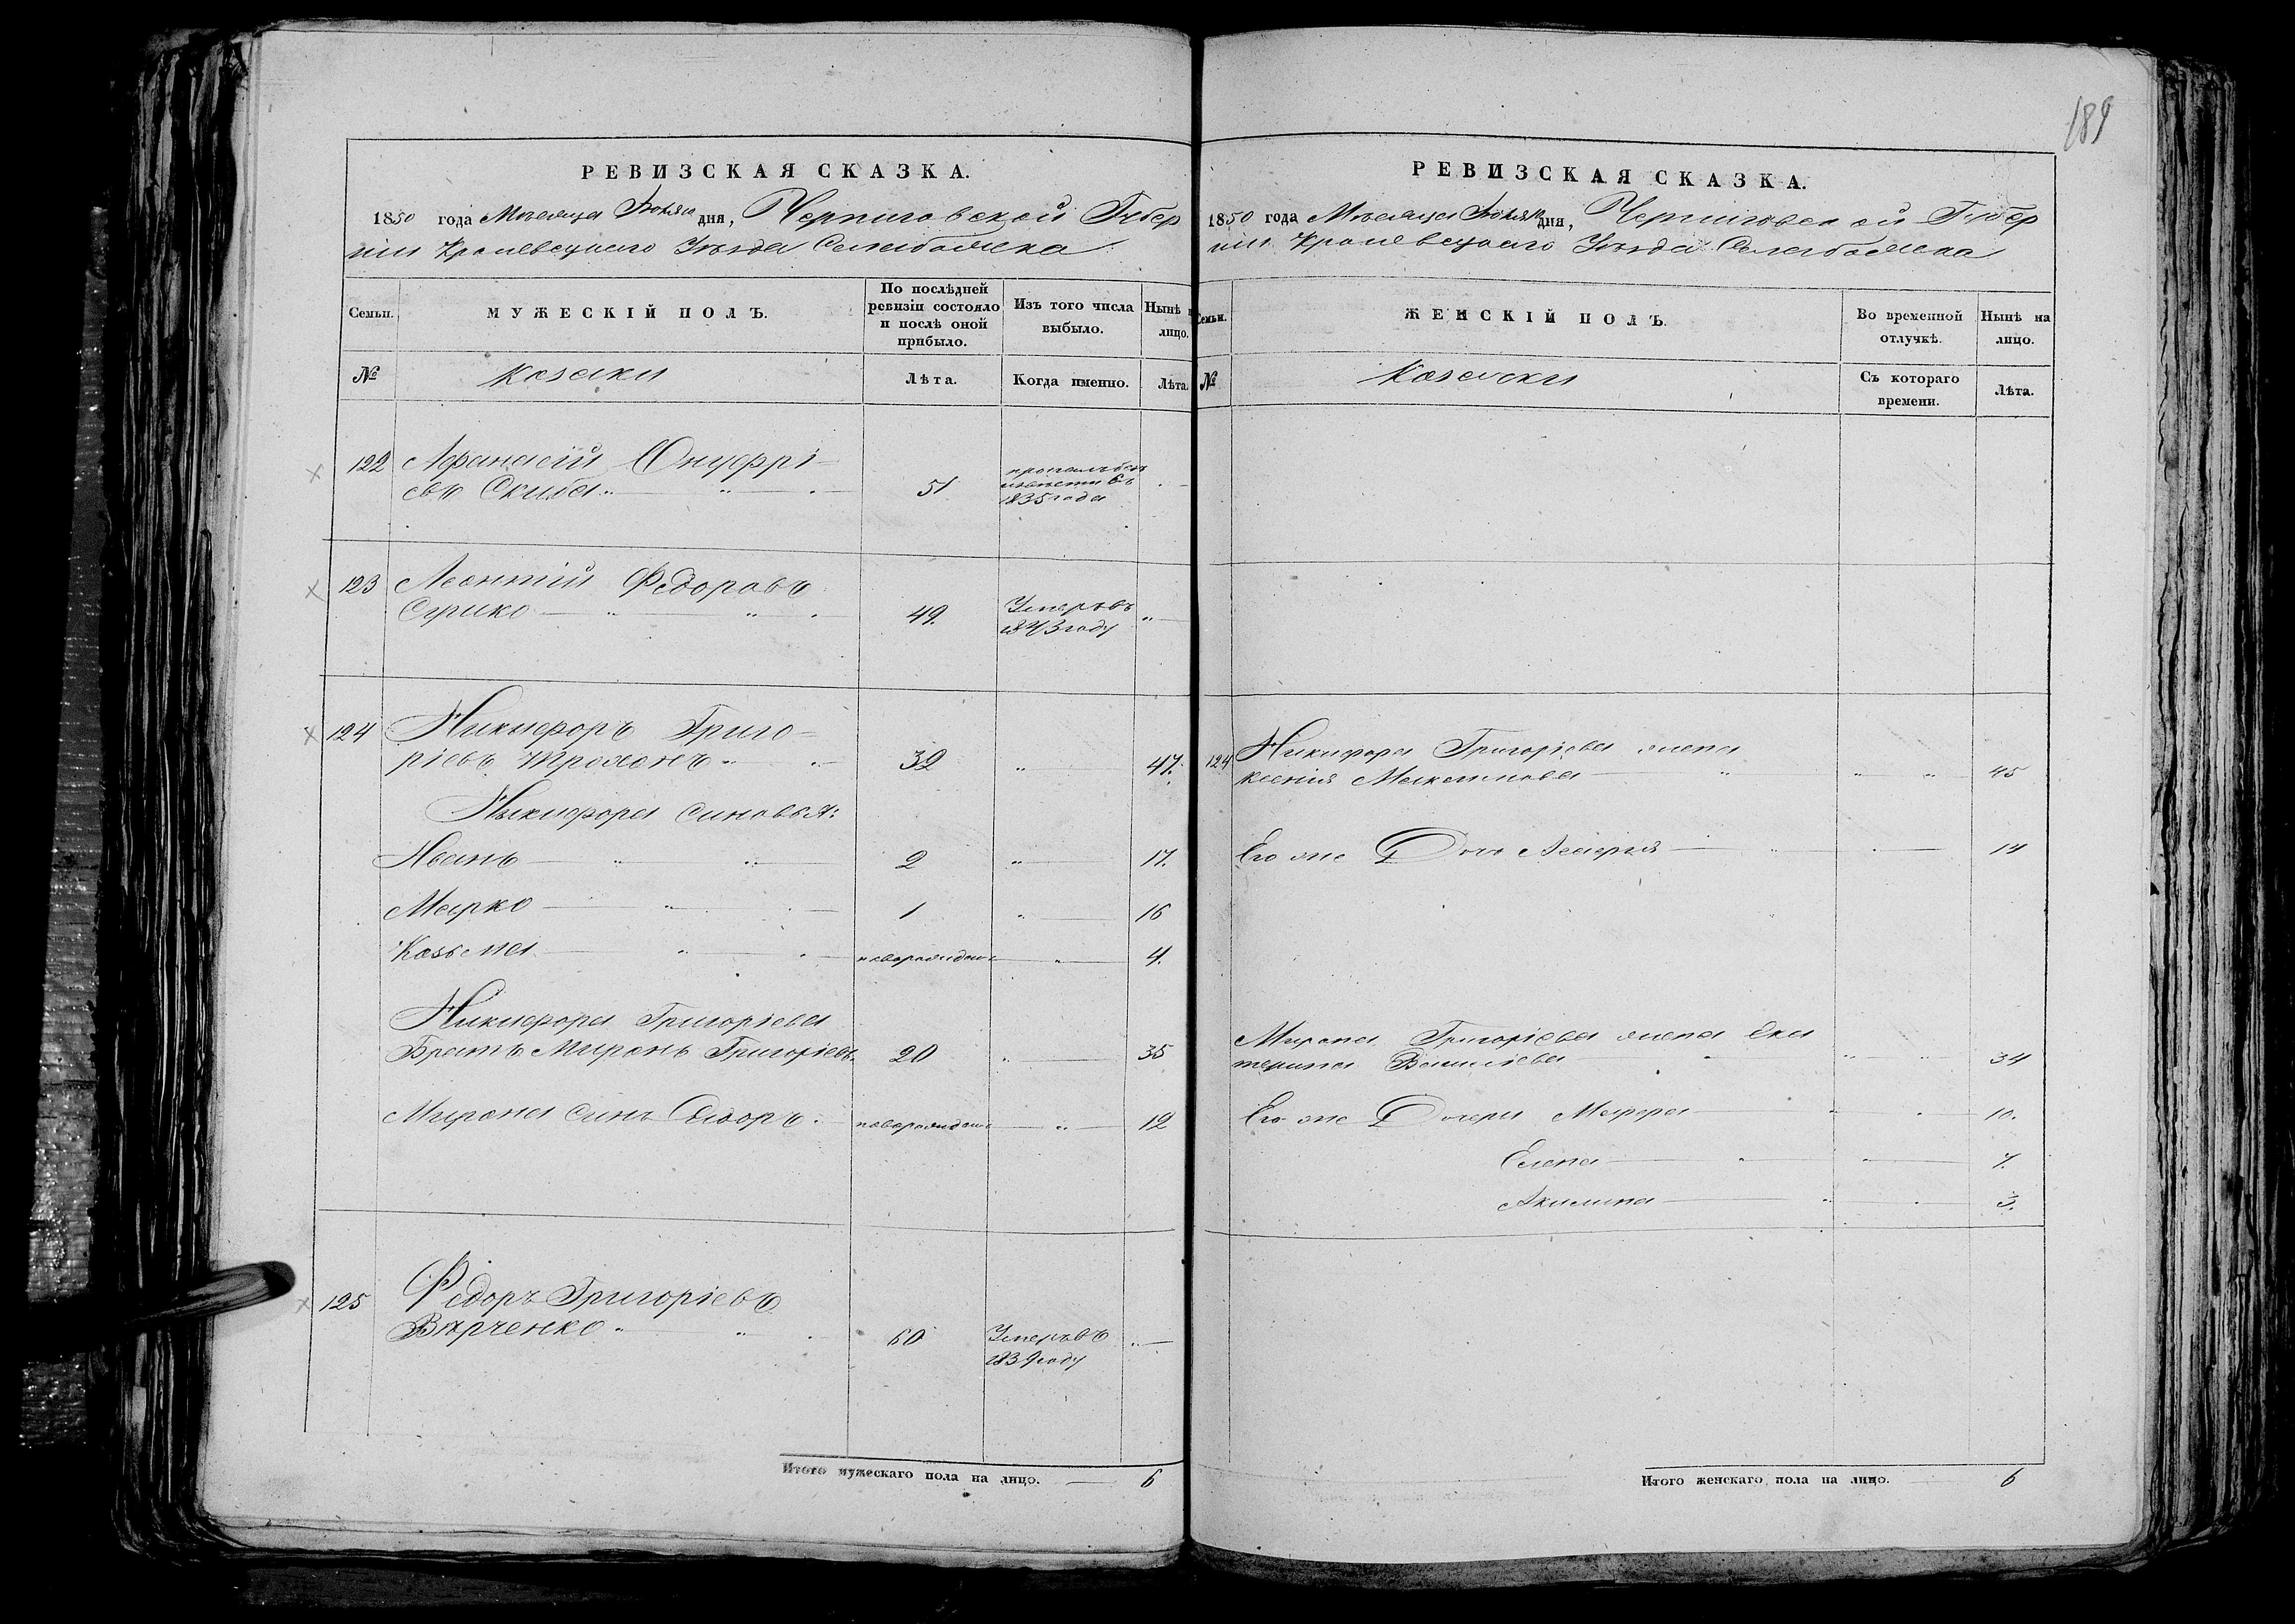 189
РЕВИЗСКАЯ СКАЗКА.
1850 года Месяца дня, Черниговской Губер
ніи Кролевецкаго Уѣзда
Семьи. МУЖЕСКІЙ ПОЛЪ. По послѣдней ревизіи состояло и послѣ оной прибыло. Изъ того числа выбыло. Нынѣ лицо.
№ Козаки Лѣта. Когда именно. Лѣта
122 Афанасій Онуфрі-
евъ Скиба 51 1835 года
123 Леонтій Федоровъ
49. Умеръ въ
1843 году
124 Никифоръ Григо-
ріевъ 32 47.
Никифора синовья:
Иванъ 2 17.
Марко 1 16
Козьма новорожден 4.
Никифора Григоріева
Братъ Миронъ Григоріевъ 20 35
Мирона синъ новорожден 12
125 Федоръ Григоріевъ
60 Умеръ въ
1839 году
Итого мужескаго пола на лицо. 6
РЕВИЗСКАЯ СКАЗКА.
1850 года Месяца дня, Черниговской Губер
ніи Кролевецкаго Уѣзда
Семьи. ЖЕНСКІЙ ПОЛЪ. Во временной отлучкѣ. Нынѣ на лицо.
№ Козачки Съ котораго времени. Лѣта.
124 Никифора Григоріева жена
Ксенія Максимова 45
Его же Дочь 14
Мирона Григоріева жена Ека
терина Василіева 34
Его же Дочери Марфа 10.
Елена 7.
Акилина 3.
Итого женскаго пола на лицо. 6